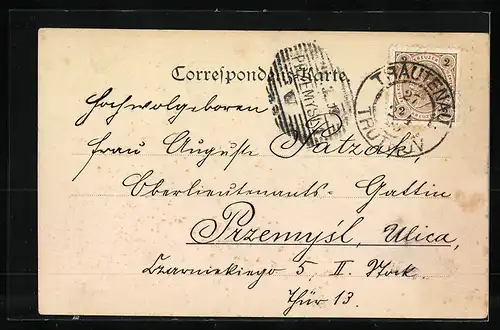 Correspondenz-Karte.
TRAUTENAU
TRUTNOV
PRZEMYŚL
2 KREUZER 2
Hochwolgeboren
Frau Auguste Satzak,
Oberlieutenants-Gattin
Przemyśl, Ulica,
Czarniekiego 5, II. Stock
Thür 13.